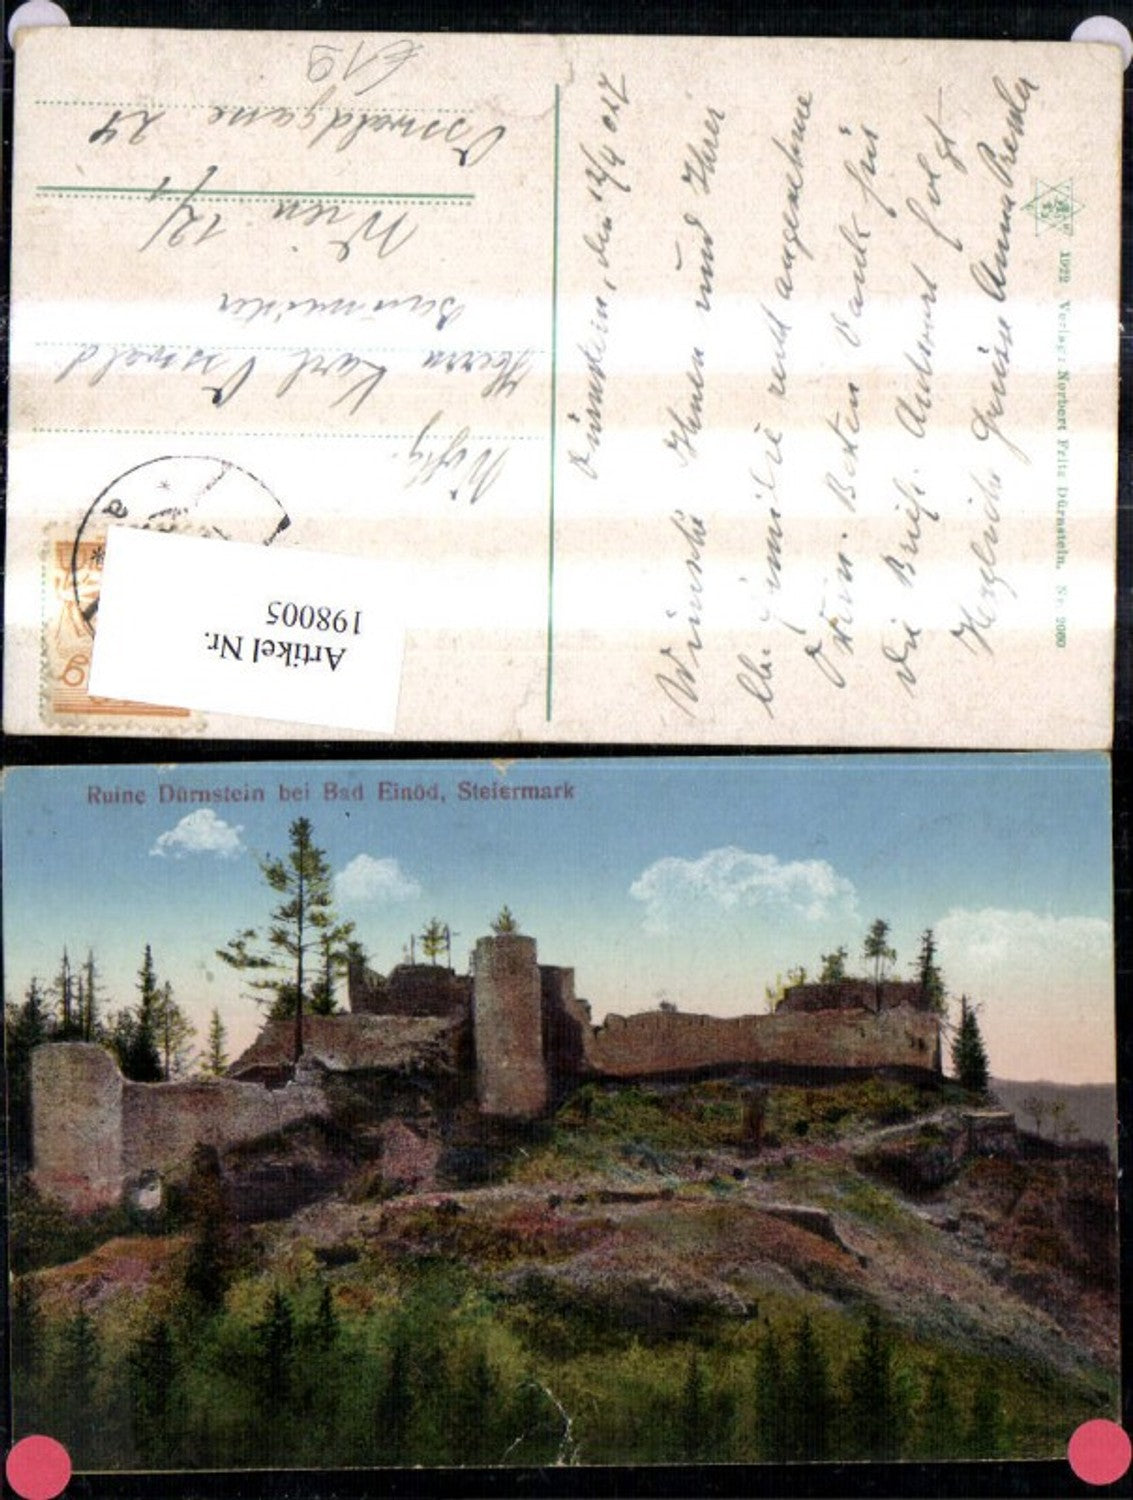 Ruine Dürnstein bei Bad Einöd, Steiermark
Artikel Nr.
198005
6
a
Herrn Karl Osswald
Baumeister
Wien 12/1
Osswaldgasse 24
€19
Dürnstein, den 12/4 927
Wünsche Ihnen und Ihrer
lb. Familie recht angenehme
Ostern. Besten Dank für
die Briefe. Antwort folgt
Herzliche Grüsse Anna
1922 Verlag: Norbert Fritz Dürnstein. Nr. 2060